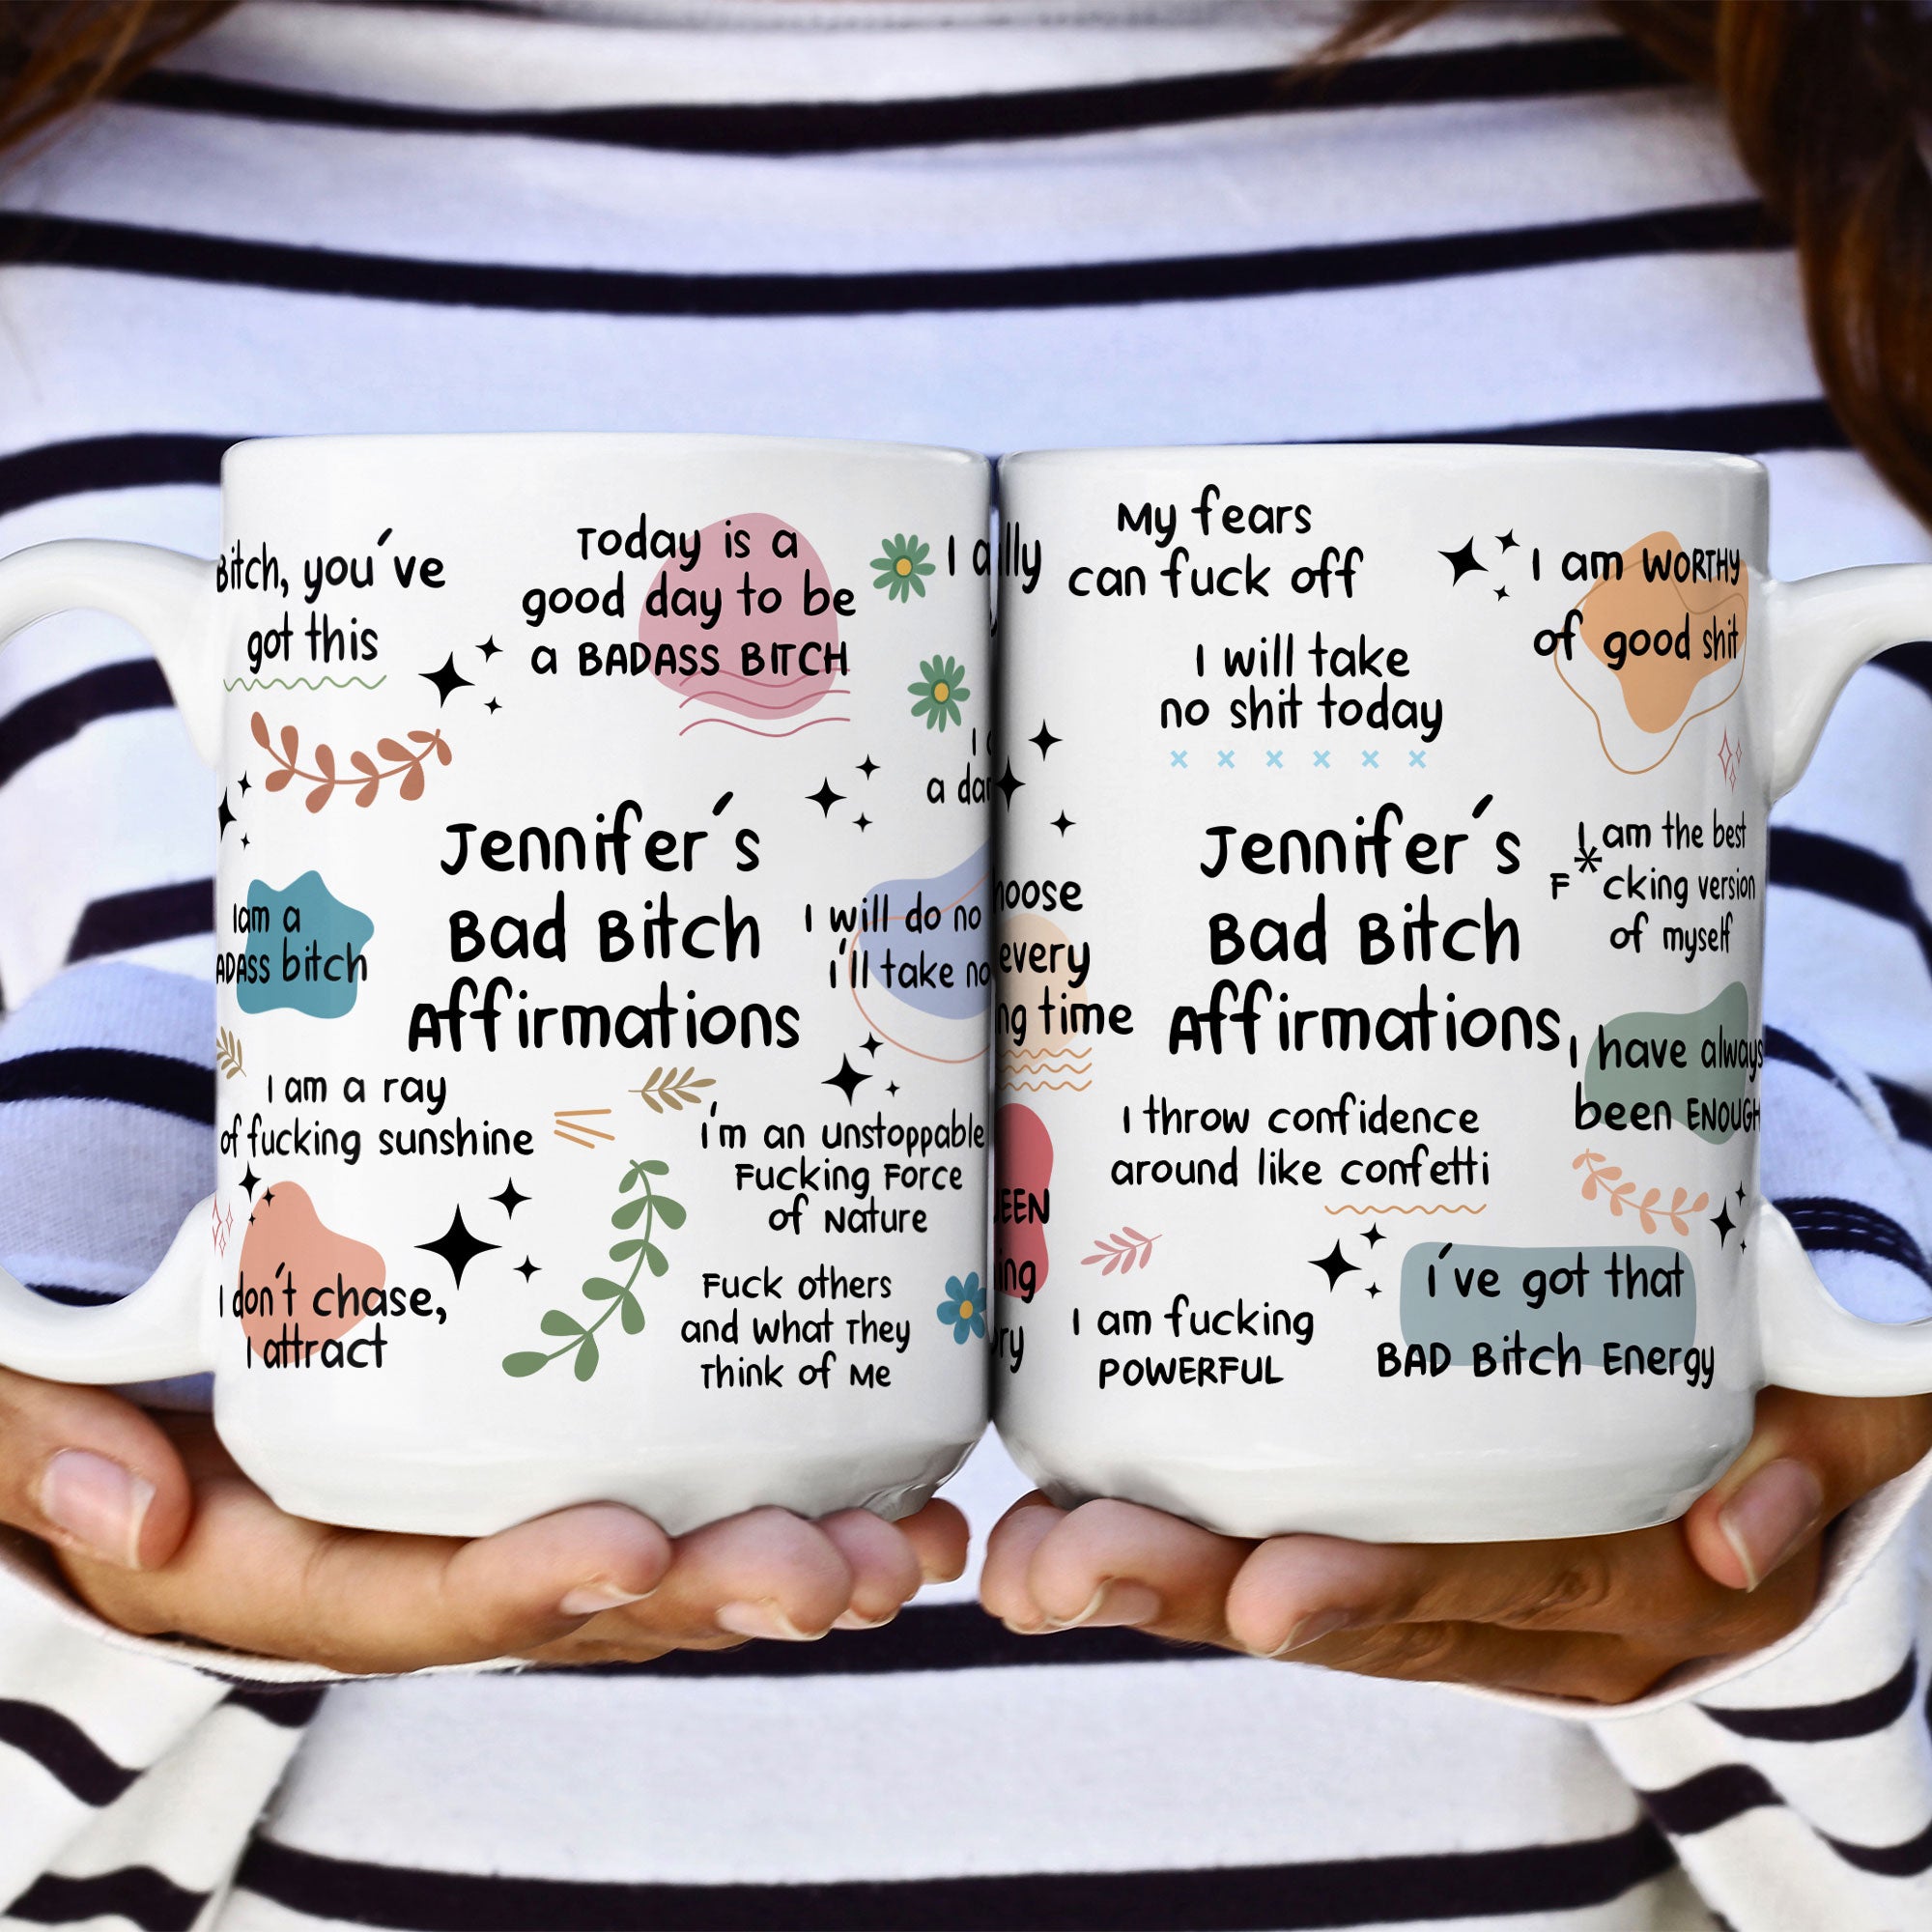 Bitch, you've
got this
Today is a
good day to be
a BADASS BITCH
I
a
Jennifer's
Bad Bitch
Affirmations
I am a
bitch
I will do no
i'll take
I am a ray
of fucking sunshine
i'm an unstoppable
Fucking Force
of Nature
I don't chase,
I attract
Fuck others
and What They
Think of Me
My fears
can fuck off
I am WORTHY
of good shit
I will take
no shit today
Jennifer's
Bad Bitch
Affirmations
I am the best
F*cking version
of myself
every
time
I have always
been ENOUGH
I throw confidence
around like confetti
i've got that
BAD Bitch Energy
I am fucking
POWERFUL